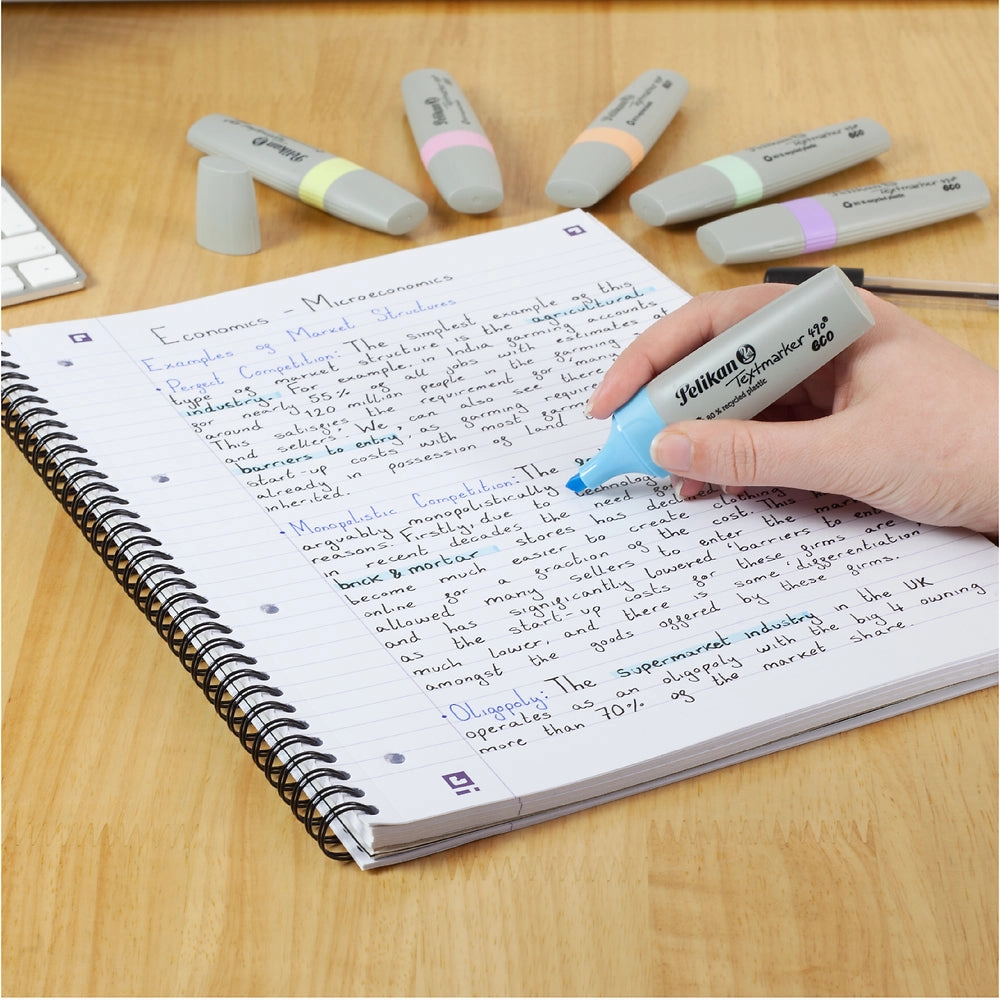 Economics - Microeconomics
Examples of Market Structures
• Perfect Competition: The simplest example of this
type of market structure is the agricultural
industry. For example, in India farming accounts
for nearly 55% of all jobs with estimates of
around 120 million people in the farming
This satisfies the requirement for many
and sellers. We can also see there
barriers to entry, as farming
start-up costs with most
already in possession of land
inherited.
• Monopolistic Competition: The
arguably monopolistically
reasons. Firstly, due to
in recent decades the need
brick & mortar stores has
become much easier to create clothing
online for a fraction of the cost. This
allowed many sellers to enter the
and has significantly lowered 'barriers to
as the start-up costs for these firms are
much lower, and there is some 'differentiation
amongst the goods offered by these firms.
• Oligopoly: The supermarket industry in the UK
operates as an oligopoly with the big 4 owning
more than 70% of the market share.
Pelikan
Textmarker 490®
eco
80% recycled plastic
Pelikan
Pelikan
Pelikan
Textmarker
eco
Textmarker
eco